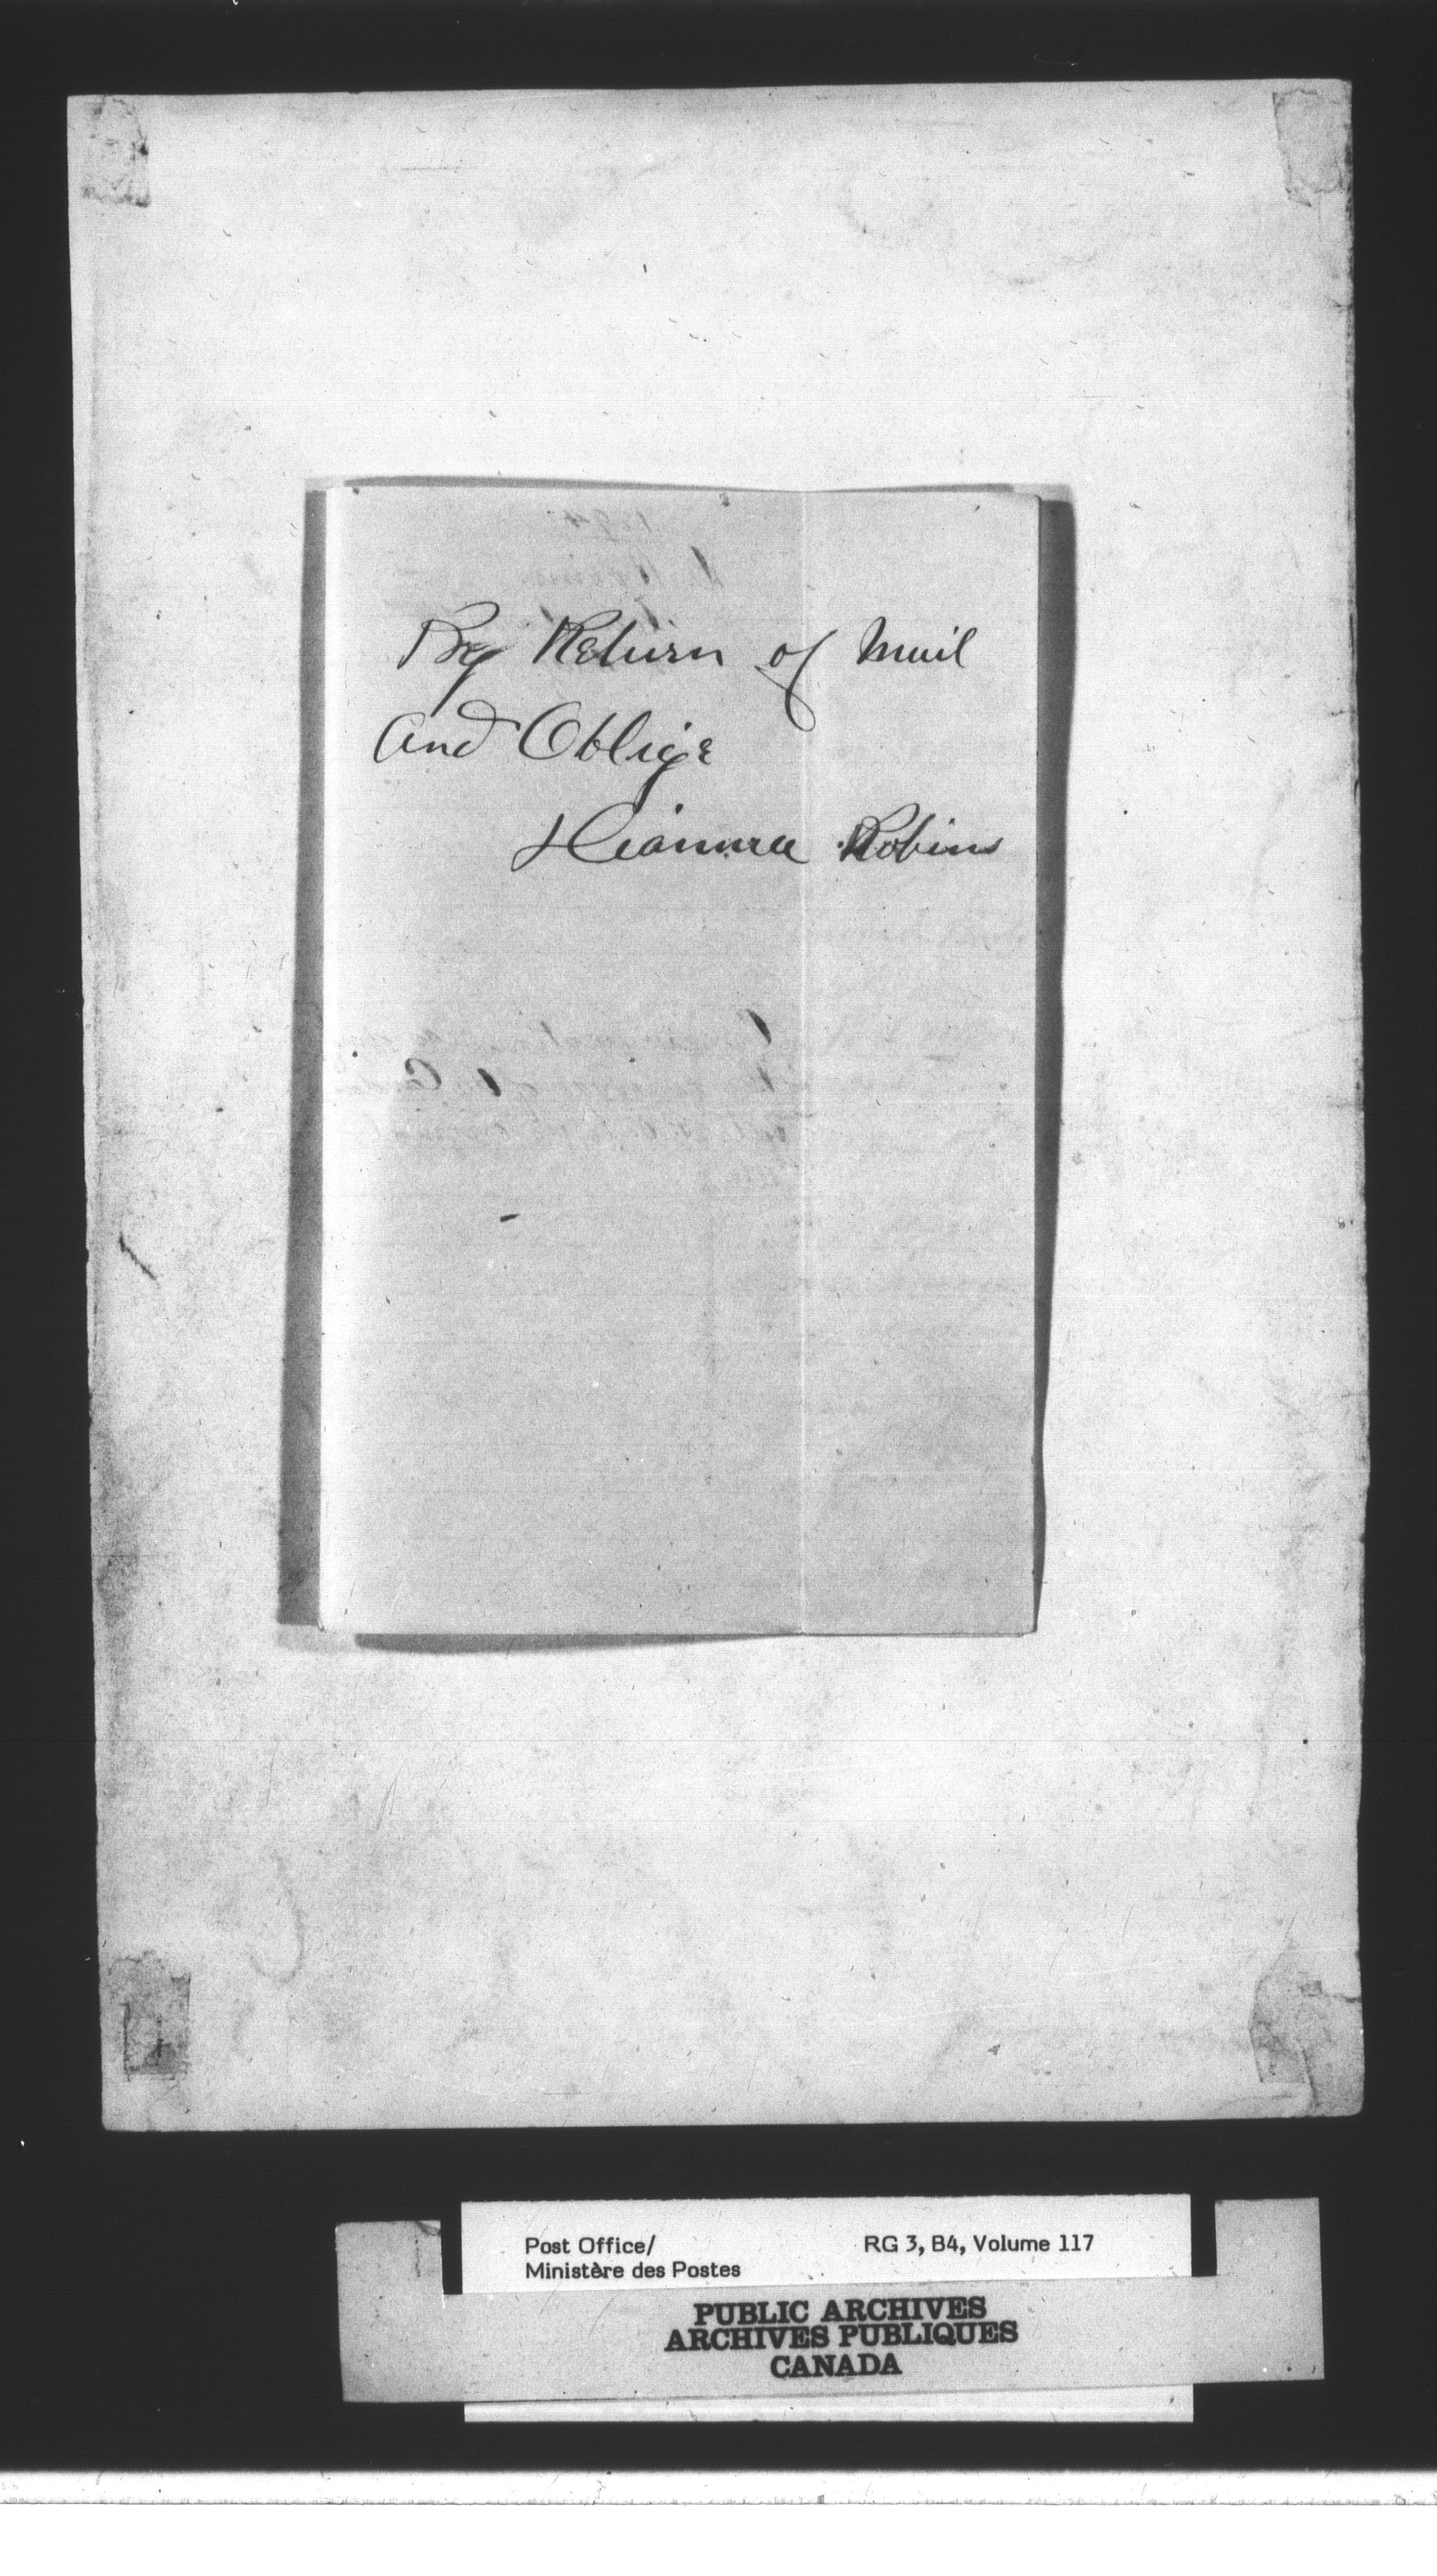 By Return of Mail
and Oblige
Robins
Post Office/
Ministère des Postes
RG 3, B4, Volume 117
PUBLIC ARCHIVES
ARCHIVES PUBLIQUES
CANADA